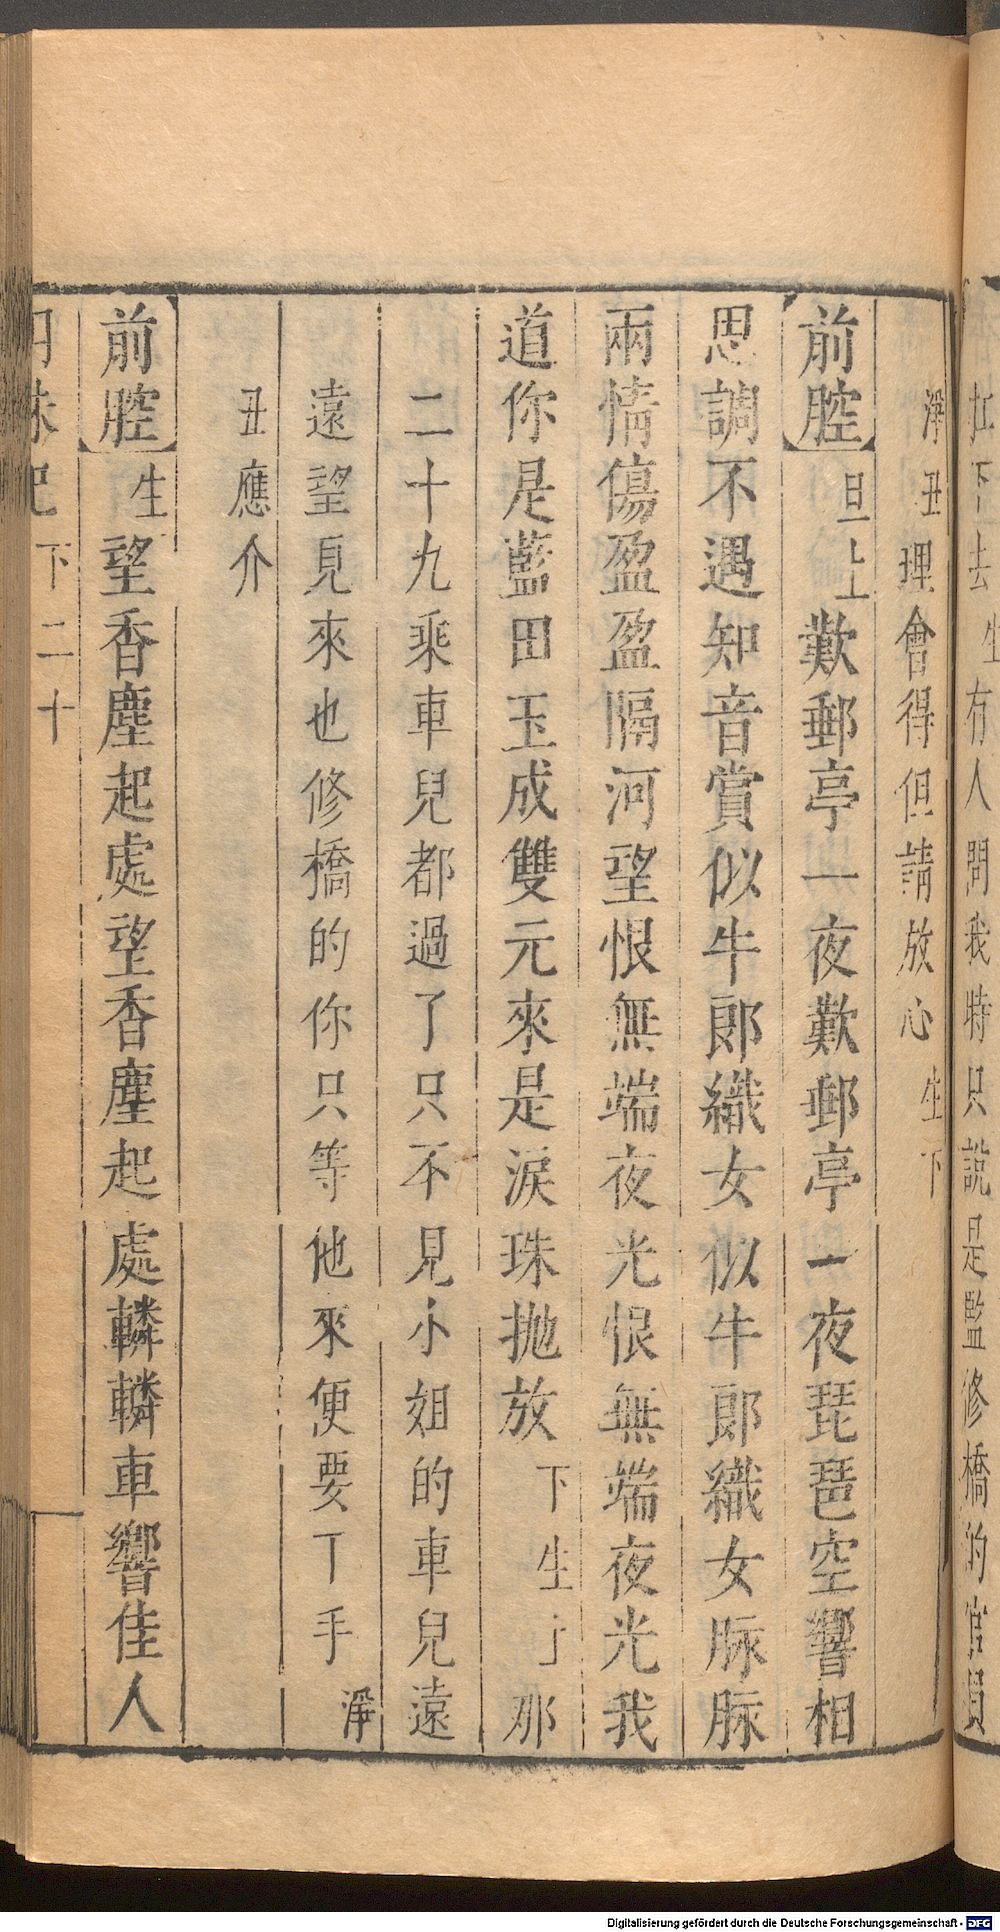 扛下去生有人問我時只說是監修橋的官員
淨丑理會得但請放心生下
前腔旦上歎郵亭一夜歎郵亭一夜琵琶空響相
思調不遇知音賞似牛郎織女似牛郎織女脉脉
兩情傷盈盈隔河望恨無端夜光恨無端夜光我
道你是藍田玉成雙元來是淚珠抛放下生了那
二十九乘車兒都過了只不見小姐的車兒遠
遠望見來也修橋的你只等他來便要丅手淨
丑應介
前腔生望香塵起處望香塵起處轔轔車響佳人
明珠記下二十
Digitalisierung gefördert durch die Deutsche Forschungsgemeinschaft - DFG